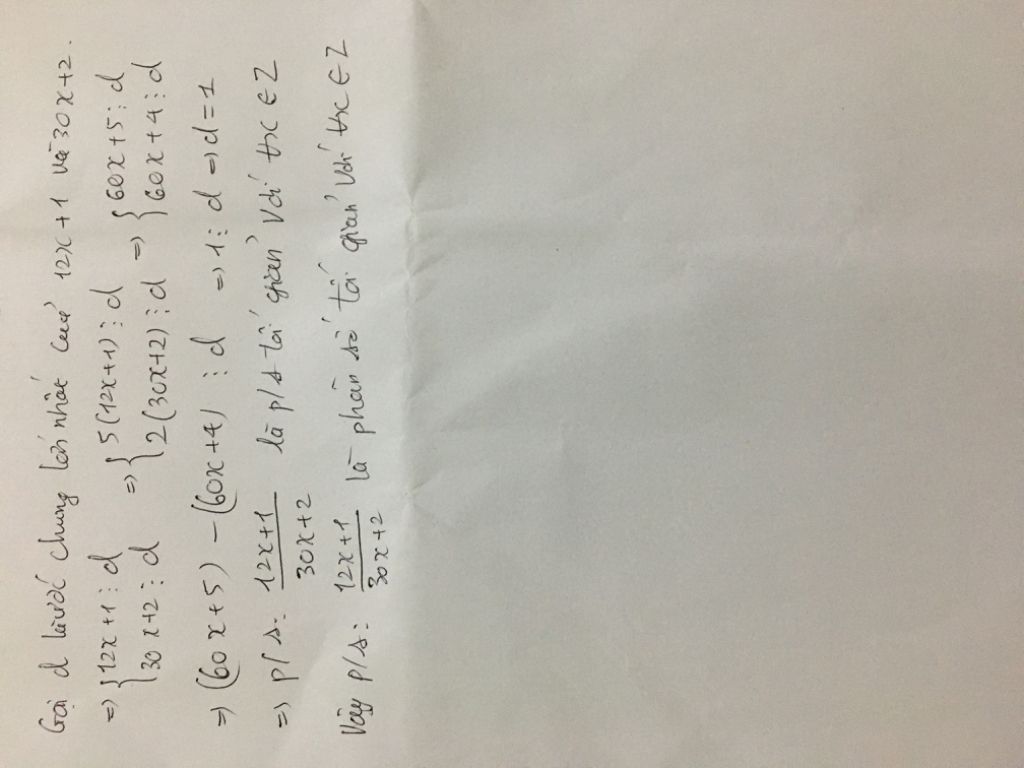 Gọi d là ước chung lớn nhất của 12x + 1 và 30x + 2.
=> { 12x + 1 ⋮ d => { 5(12x + 1) ⋮ d => { 60x + 5 ⋮ d
30x + 2 ⋮ d 2(30x + 2) ⋮ d 60x + 4 ⋮ d
=> (60x + 5) - (60x + 4) ⋮ d => 1 ⋮ d => d = 1
=> p/s: 12x+1 / 30x+2 là p/s tối giản với ∀x ∈ Z
Vậy p/s: 12x+1 / 30x+2 là phân số tối giản với ∀x ∈ Z